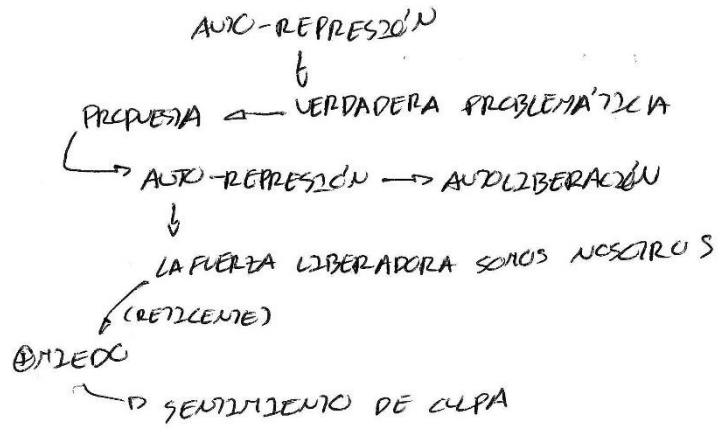 AUTO-REPRESIÓN
PROPUESTA ← VERDADERA PROBLEMÁTICA
AUTO-REPRESIÓN → AUTOLIBERACIÓN
LA FUERZA LIBERADORA SOMOS NOSOTROS
(RETICENTE)
⊕MIEDO
SENTIMIENTO DE CULPA